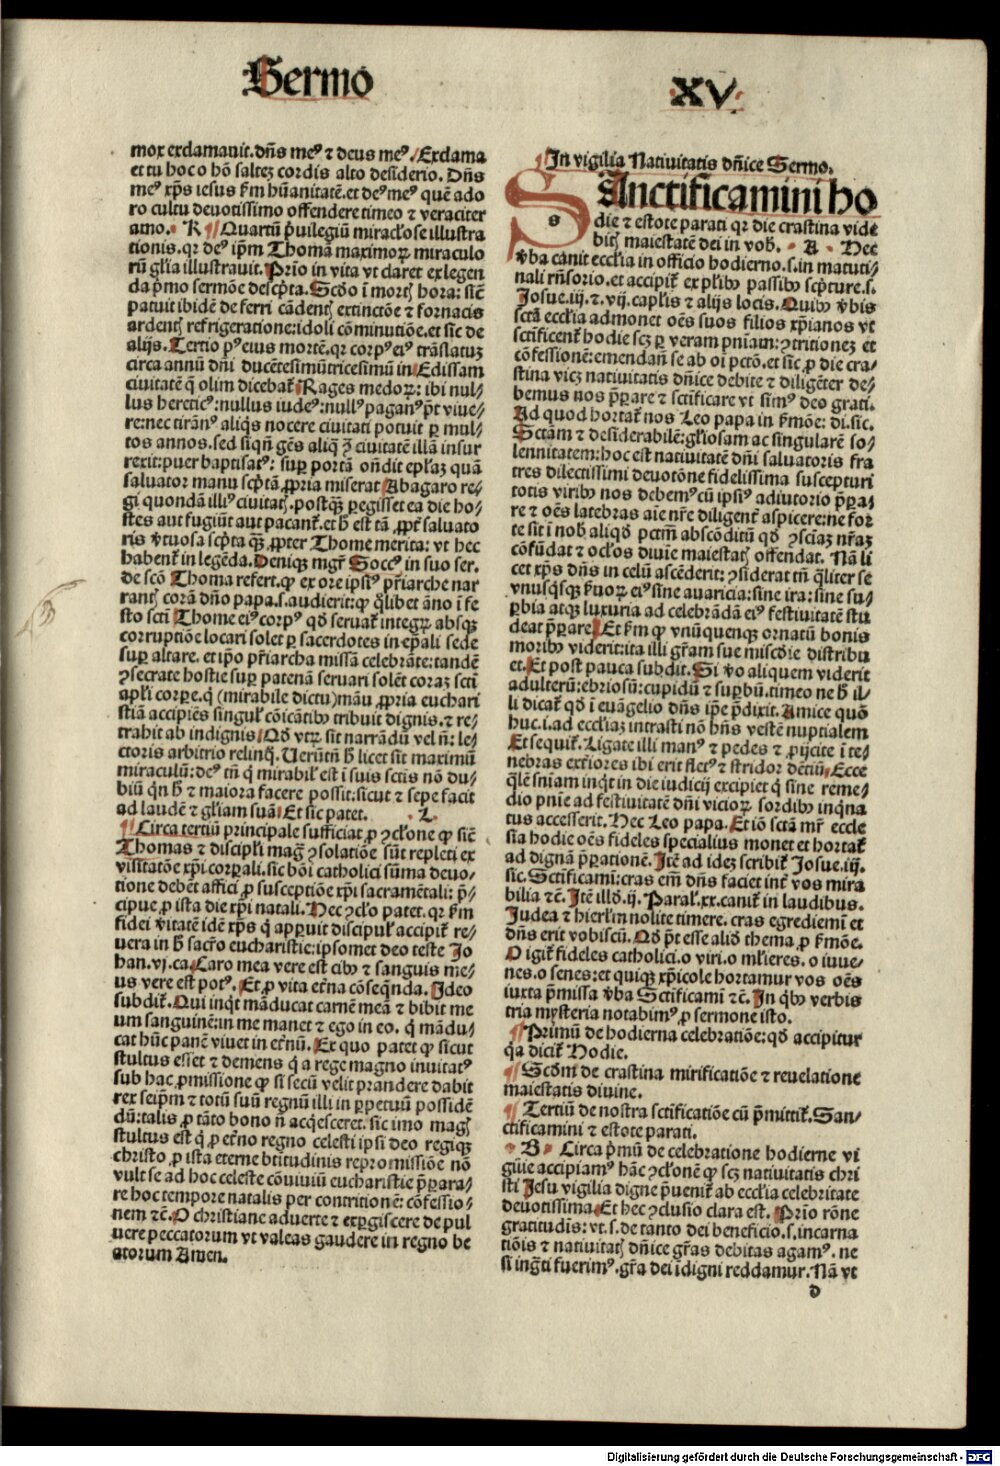 Sermo
XV
mox exclamauit. dn̄s meꝰ ⁊ deus meꝰ. Exclama
et tu hoc o hō saltez cordis alto desiderio. Dn̄s
meꝰ xp̄s iesus ẜm hūanitatē. et deꝰ meꝰ quē ado
ro cultu deuotissimo offendere timeo ⁊ veraciter
amo. K Quartū p̄uilegiū miracl'ose illustra
tionis. qr deꝰ ip̄m Thomā maximoꝝ miraculo
rū gl'ia illustrauit. Prīo in vita vt claret ex legen
da p̄mo sermōe descp̄ta. Scd'o ī mortꝭ hora: sic̄
patuit ibidē de ferri cādentꝭ extinctōe ⁊ fornacis
ardentꝭ refrigeratione: idoli cōminutiōe. et sic de
alijs. Tertio pꝰ eius mortē. qr corpꝰ eiꝰ trāslatuꝫ
circa annū dn̄i ducētesimūtricesimū in Edissam
ciuitatē q̄ olim dicebat̄ Rages medoꝝ: ibi nul/
lus hereticꝰ: nullus iudeꝰ: nullꝰ paganꝰ p̄t viue/
re: nec tirānꝰ aliq̄s nocere ciuitati potuit ꝑ mul/
tos annos. sed siqn̄ gēs aliq̄ ꝯ̄ ciuitatē illā insur
rexit: puer baptisatꝰ: suꝑ portā on̄dit epl'aꝫ quā
saluator manu scp̄tā ꝓpria miserat Abagaro re/
gi quondā illiꝰ ciuitatꝭ. postqꝫ ꝑegisset ea die ho/
stes aut fugiūt aut pacant̄. et h̄ est tā ꝓpt̄ saluato
ris v̄tuosa scp̄ta qꝫ ꝓpter Thome merita: vt hec
habent̄ in legēda. Deniqꝫ mgr̄ Soccꝰ in suo ser.
de scō Thoma refert. ꝙ ex ore ipsiꝰ pr̄iarche nar
rantꝭ corā dn̄o papa. s. audierit: ꝙ q̄libet āno ī fe
sto scti Thome eiꝰ corpꝰ qd̄ seruat̄ integꝝ absqꝫ
corruptiōe locari solet ꝑ sacerdotes in ep̄ali sede
suꝑ altare. et ip̄o pr̄iarcha missā celebrāte: tandē
ꝯsecrate hostie suꝑ patenā seruari solēt coraꝫ scti
apl'i corꝑe. q̄ (mirabile dictu) māu ꝓpria euchari
stiā accipiēs singul' cōicātibꝰ tribuit dignis. ⁊ re/
trahit ab indignis. Qd̄ vtꝝ sit narrādū vel n̄: le/
ctoris arbitrio relinq̄. Uerūtn̄ h̄ licet sit maximū
miraculū: deꝰ tn̄ q̄ mirabil' est ī suis sctis nō du/
biū qn̄ h̄ ⁊ maiora facere possit: sicut ⁊ sepe facit
ad laudē ⁊ gl'iam suā. Et sic patet. L
Circa tertiū principale sufficiat ꝓ ꝯcl'one ꝙ sic̄
Thomas ⁊ discipl'i magꝭ ꝯsolatiōe sūt repleti ex
visitatōe xp̄i corꝑali. sic bōi catholici sūma deuo/
tione debēt affici ꝓ susceptiōe xp̄i sacramētali: p̄/
cipue ꝓ ista die xp̄i natali. Hec ꝯcl'o patet. qr ẜm
fidei v̄itatē idē xp̄s q̄ apꝑuit discipul' accipit̄ re/
uera in h̄ sacr̄o eucharistie: ipsomet deo teste Jo
han. vj. ca. Caro mea vere est cibꝰ ⁊ sanguis me/
us vere est potꝰ. Et ꝓ vita et̄na cōseq̄nda. Ideo
subdit̄. Qui inq̄t māducat carnē meā ⁊ bibit me
um sanguinē: in me manet ⁊ ego in eo. q̄ mādu/
cat hūc panē viuet in et̄nū. Ex quo patet ꝙ sicut
stultus esset ⁊ demens q̄ a rege magno inuitatꝰ
sub hac ꝓmissione ꝙ si secū velit prandere dabit
rex seip̄m ⁊ totū suū regnū illi in ꝑpetuū possidē
dū: talis ꝓ tāto bono n̄ acq̄esceret. sic imo magꝭ
stultus est q̄ ꝓ et̄no regno celesti ipsi deo regiqꝫ
christo ꝓ ista eterne btitudinis repromissiōe nō
vult se ad hoc celeste cōuiuiū eucharistie p̄ꝑara/
re hoc tempore natalis per contritionē: cōfessio/
nem ⁊c̄. O christiane aduerte ⁊ exꝑgiscere de pul
uere peccatorum vt valeas gaudere in regno be
atorum Amen.
In vigilia Natiuitatis dn̄ice Sermo.
SAnctificamini ho
die ⁊ estote parati qr die crastina vide
bitꝭ maiestatē dei in vob̄. A Hec
v̄ba canit eccl'ia in officio hodierno. s. in matuti/
nali rn̄sorio. et accipit̄ ex pl'ibꝰ passibꝰ scp̄ture. s.
Josue. iij. ⁊. vij. capl'is ⁊ alijs locis. Quibꝰ v̄bis
sctā eccl'ia admonet oēs suos filios xp̄ianos vt
sctificent̄ hodie scꝫ ꝑ veram pn̄iam: ꝯtritionez et
cōfessionē: emendan̄ se ab oi pctō. et sic ꝓ die cra/
stina vicꝫ natiuitatis dn̄ice debite ⁊ diligēter de/
bemus nos p̄ꝑare ⁊ sctificare vt simꝰ deo grati.
Ad quod hortat̄ nos Leo papa in ẜmōe: di. sic.
Sctam ⁊ desiderabilē: gl'iosam ac singularē so/
lennitatem: hoc est natiuitatē dn̄i saluatoris fra
tres dilectissimi deuotōne fidelissima suscepturi
totis viribꝰ nos debemꝰ cū ipsiꝰ adiutorio p̄ꝑa/
re ⁊ oēs latebras aīe nr̄e diligent̄ aspicere: ne for
te sit ī nob̄ aliqd̄ pctm̄ abscōditū qd̄ ꝯsciaꝫ nr̄aꝫ
cōfūdat ⁊ ocl'os diuīe maiestatꝭ offendat. Nā li
cet xp̄s dn̄s in celū ascēderit: ꝯsiderat tn̄ q̄liter se
vnusq̄sqꝫ ẜuoꝝ eiꝰ sine auaricia: sine ira: sine su/
ꝑbia atqꝫ luxuria ad celebrādā eiꝰ festiuitatē stu
deat p̄ꝑare. Et ẜm ꝙ vnūquenqꝫ ornatū bonis
moribꝰ viderit: ita illi gr̄am sue miscd̄ie distribu
et. Et post pauca subdit. Si v̄o aliquem viderit
adulterū: ebriosū: cupidū ⁊ suꝑbū. timeo ne h̄ il/
li dicat̄ qd̄ ī euāgelio dn̄s ip̄e p̄dixit. Amice quō
huc. i. ad eccl'iaꝫ intrasti nō hn̄s vestē nuptialem
Et sequit̄. Ligate illi manꝰ ⁊ pedes ⁊ ꝓijcite ī te/
nebras ext̄iores ibi erit fletꝰ ⁊ stridor dētiū. Ecce
q̄lē sn̄iam inq̄t in die iudicij excipiet q̄ sine reme/
dio pn̄ie ad festiuitatē dn̄i vicioꝝ sordibꝰ inqna
tus accesserit. Hec Leo papa. Et iō sctā mr̄ eccle
sia hodie oēs fideles specialius monet et hortat̄
ad dignā p̄ꝑationē. Itē ad idez scribit̄ Josue. iij.
sic. Sctificami: cras em̄ dn̄s faciet int̄ vos mira
bilia ⁊c̄. Itē illd̄. ij. Paral'. xx. canit̄ in laudibus.
Judea ⁊ hierl'm nolite timere. cras egrediemi et
dn̄s erit vobiscū. Qd̄ p̄t esse aliud̄ thema ꝓ ẜmōe.
O igit̄ fideles catholici. o viri. o ml'ieres. o iuue/
nes. o senes: et quiqꝫ xp̄icole hortamur vos oēs
iuxta p̄missa v̄ba Sctificami ⁊c̄. In q̄bꝰ verbis
tria mysteria notabimꝰ ꝓ sermone isto.
Primū de hodierna celebratiōe: qd̄ accipitur
q̄a dicit̄ Hodie.
Scdm̄ de crastina mirificatiōe ⁊ reuelatione
maiestatis diuine.
Tertiū de nostra sctificatiōe cū p̄mittit̄. San/
ctificamini ⁊ estote parati.
B Circa p̄mū de celebratione hodierne vi
gilie accipiamꝰ hāc ꝯcl'onē ꝙ scꝫ natiuitatis chri
sti Jesu vigilia digne p̄uenit̄ ab eccl'ia celebritate
deuotissima. Et hec ꝯclusio clara est. Prīo rōne
gratitudīs: vt. s. de tanto dei beneficio. s. incarna
tiōis ⁊ natiuitatꝭ dn̄ice gr̄as debitas agamꝰ. ne
si inḡti fuerimꝰ. gr̄a dei īdigni reddamur. Nā vt
d
Digitalisierung gefördert durch die Deutsche Forschungsgemeinschaft - DFG